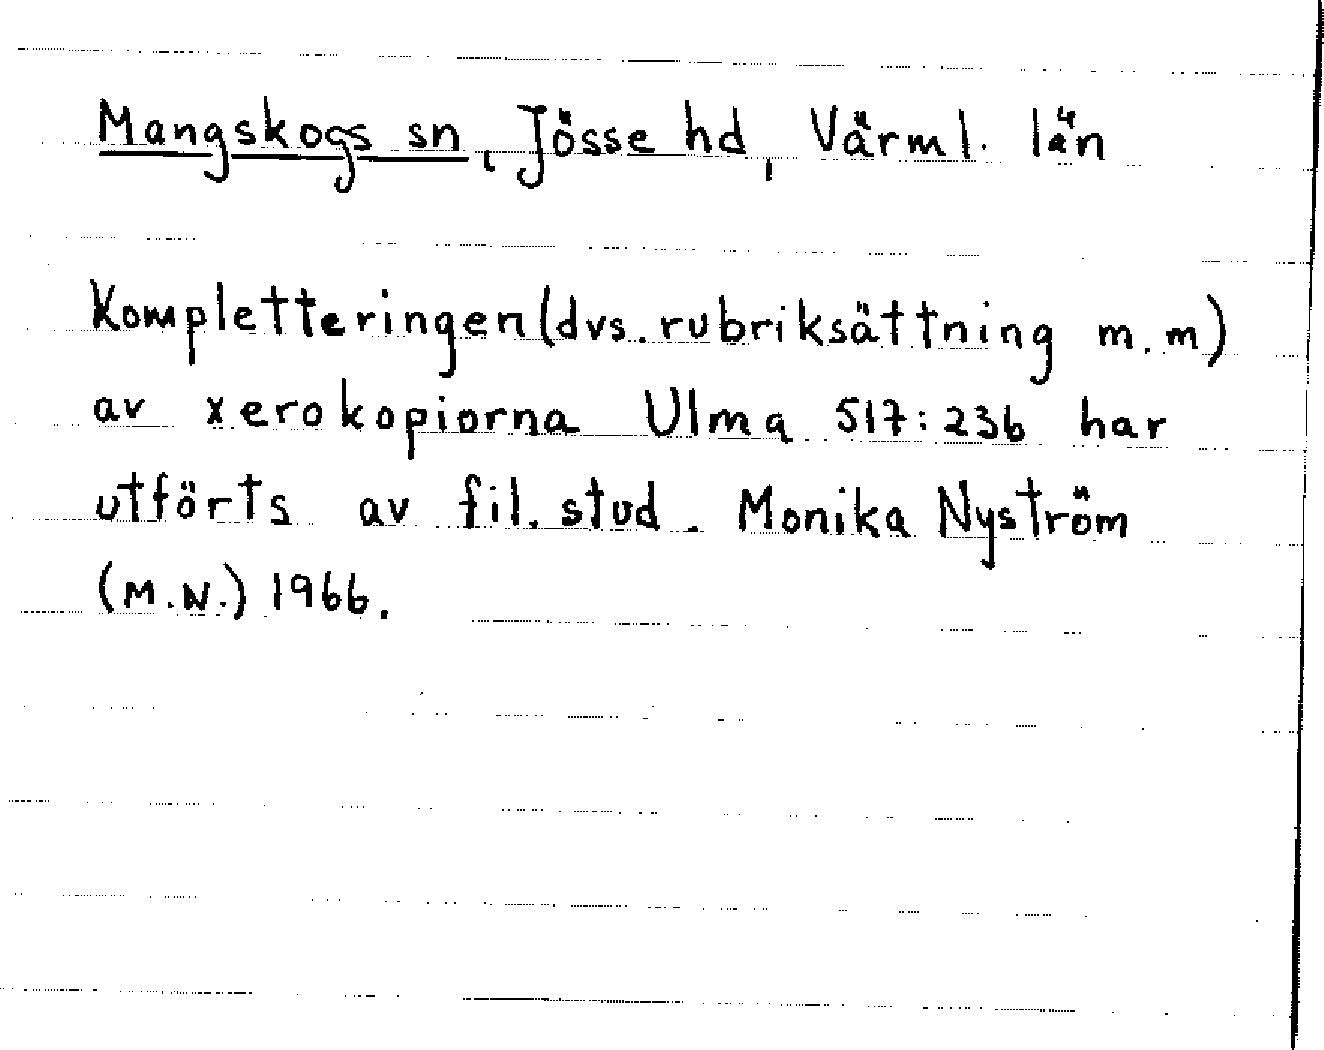 Mangskogs sn, Jösse hd, Värml. län
Kompletteringen (dvs. rubriksättning m.m)
av xerokopiorna Ulma 517:236 har
utförts av fil. stud. Monika Nyström
(M.N.) 1966.